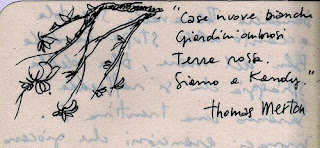 "Case nuove bianche
Giardini ombrosi
Terra rossa.
Siamo a Kandy."
Thomas Merton